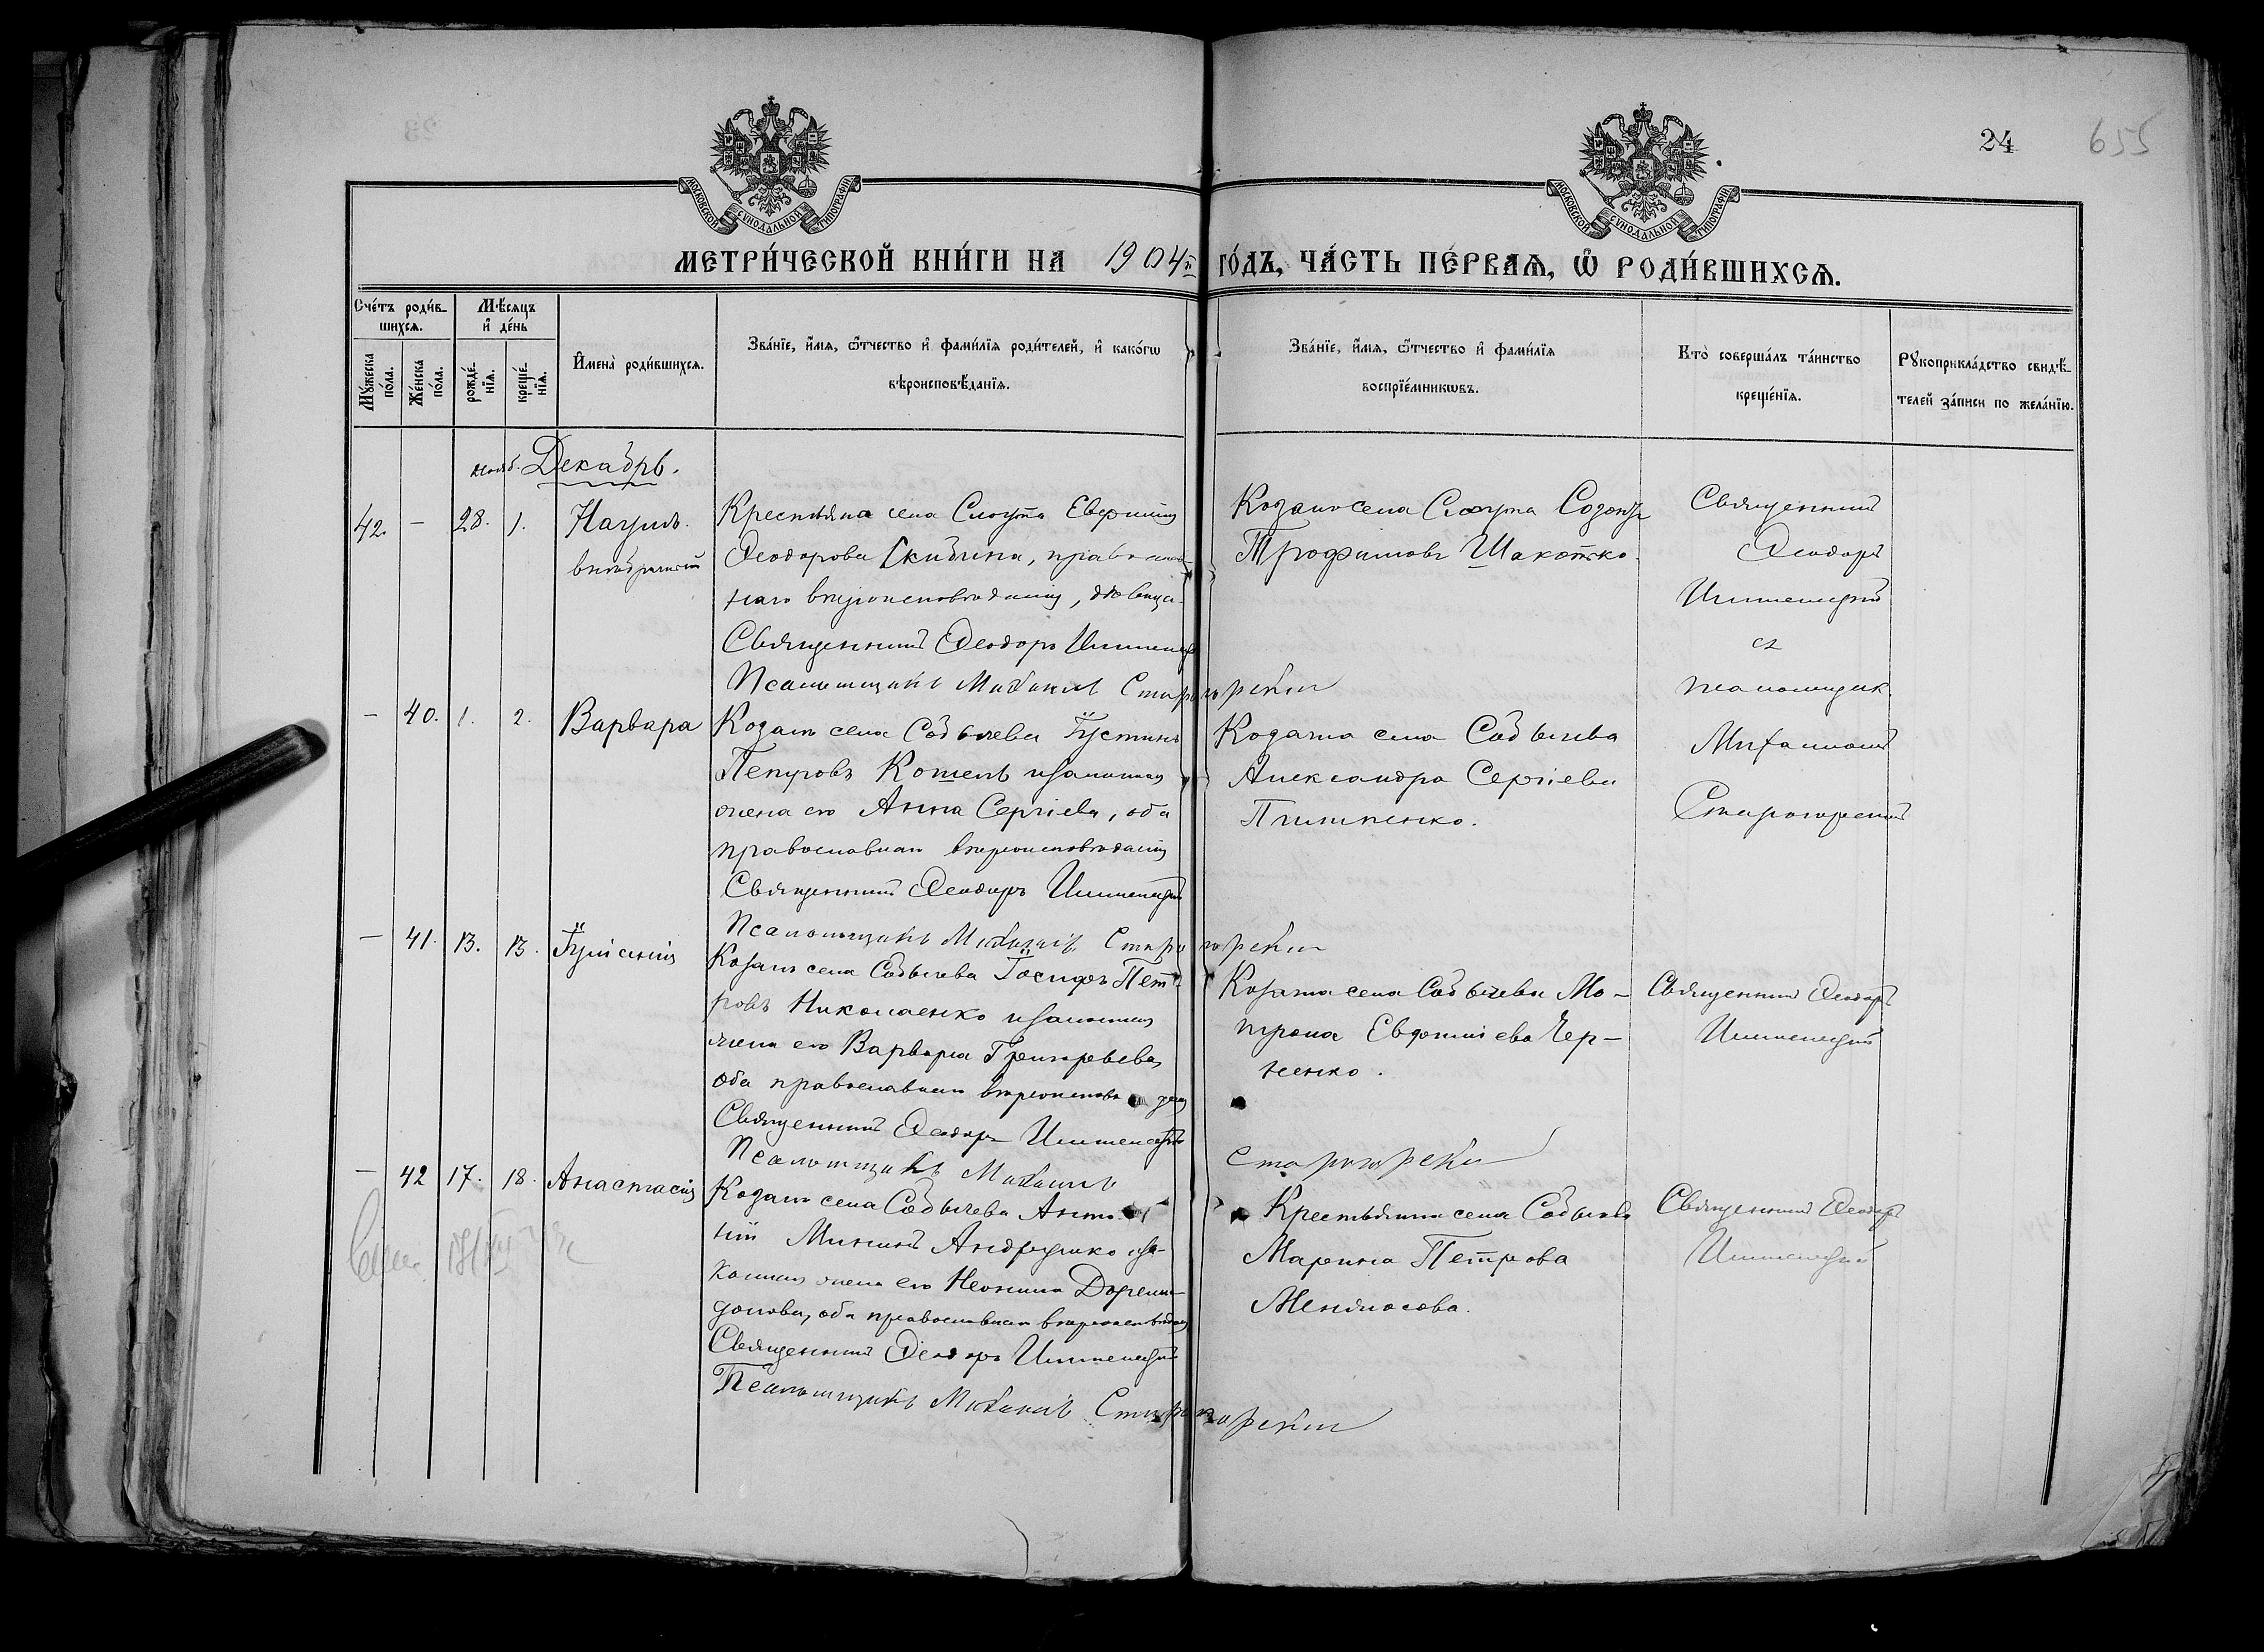 24
655
МОСКОВСКОЙ СУНОДАЛЬНОЙ ТИПОГРАФІИ
МОСКОВСКОЙ СУНОДАЛЬНОЙ ТИПОГРАФІИ
МЕТРИ́ЧЕСКОЙ КНИ́ГИ НА 1904й ГО́ДЪ, ЧА́СТЬ ПЕ́РВАѦ, Ѡ҆ РОДИ́ВШИХСѦ.
Сче́тъ роди́вшихсѧ.
Мꙋ́жеска по́ла.
Же́нска по́ла.
Мѣ́сѧцъ и҆ де́нь
рожде́нїѧ.
креще́нїѧ.
И҆мена̀ роди́вшихсѧ.
Зва́нїе, и҆́мѧ, ѻ҆́тчество и҆ фами́лїѧ роди́телей, и҆ како́гѡ
вѣроисповѣ́данїѧ.
Зва́нїе, и҆́мѧ, ѻ҆́тчество и҆ фами́лїѧ
воспрїе́мникѡвъ.
Кто̀ соверша́лъ та́инство
креще́нїѧ.
Рꙋкоприкла́дство свидѣ́-
телей за́писи по жела́нїю.
нояб. Декабрь.
42. — 28. 1. Наумъ
внѣбрачный
Крестьянка села Слоута Евфимія
Ѳеодорова Скибина, православ-
наго вѣроисповѣданія, дѣвица
Священникъ Ѳеодоръ
Псаломщикъ Михаилъ Старогорскій
Козакъ села Слоута Созонтъ
Трофимовъ Шакотько.
Священникъ
Ѳеодоръ
съ
псаломщик.
Михаиломъ
Старогорскимъ
— 40. 1. 2. Варвара
Козакъ села Собычева Іустинъ
Петровъ Кошель изаконная
жена его Анна Сергіева, оба
православнаго вѣроисповѣданія
Священникъ Ѳеодоръ
Псаломщикъ Михаилъ Старогорскій
Козачка села Собычева
Александра Сергіева
Пилипенко.
— 41. 13. 13. Іуліанія
Козакъ села Собычева Іосифъ Пет-
ровъ Николаенко изаконная
жена его Варвара Григорьева,
оба православнаго
Священникъ Ѳеодоръ
Псаломщикъ Михаилъ Старогорскій
Козачка села Собычева Мо-
трона Евфиміева Чер-
ненко.
Священникъ Ѳеодоръ
— 42 17. 18. Анастасія
Козакъ села Собычева Анто-
ній Мининъ Андрушко иза-
конная жена его Неонила
оба православнаго
Священникъ Ѳеодоръ
Псаломщикъ Михаилъ Старогорскій
Крестьянка села Собычева
Марина Петрова
Священникъ Ѳеодоръ